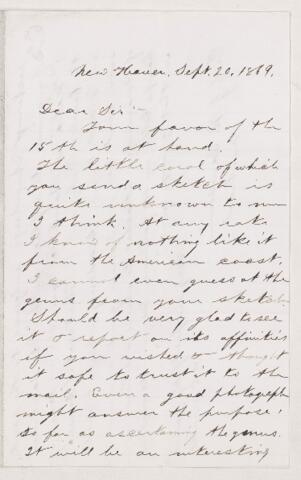 New Haven, Sept. 20, 1869.
Dear Sir:-
Your favor of the
15th is at hand.
The little coral of which
you send a sketch is
quite unknown to me
I think. At any rate
I know of nothing like it
from the American coast.
I cannot even guess at the
genus from your sketch.
Should be very glad to see
it & report on its affinities
if you wished & thought
it safe to trust it to the
mail. Even a good photograph
might answer the purpose,
so far as ascertaining the genus.
It will be an interesting